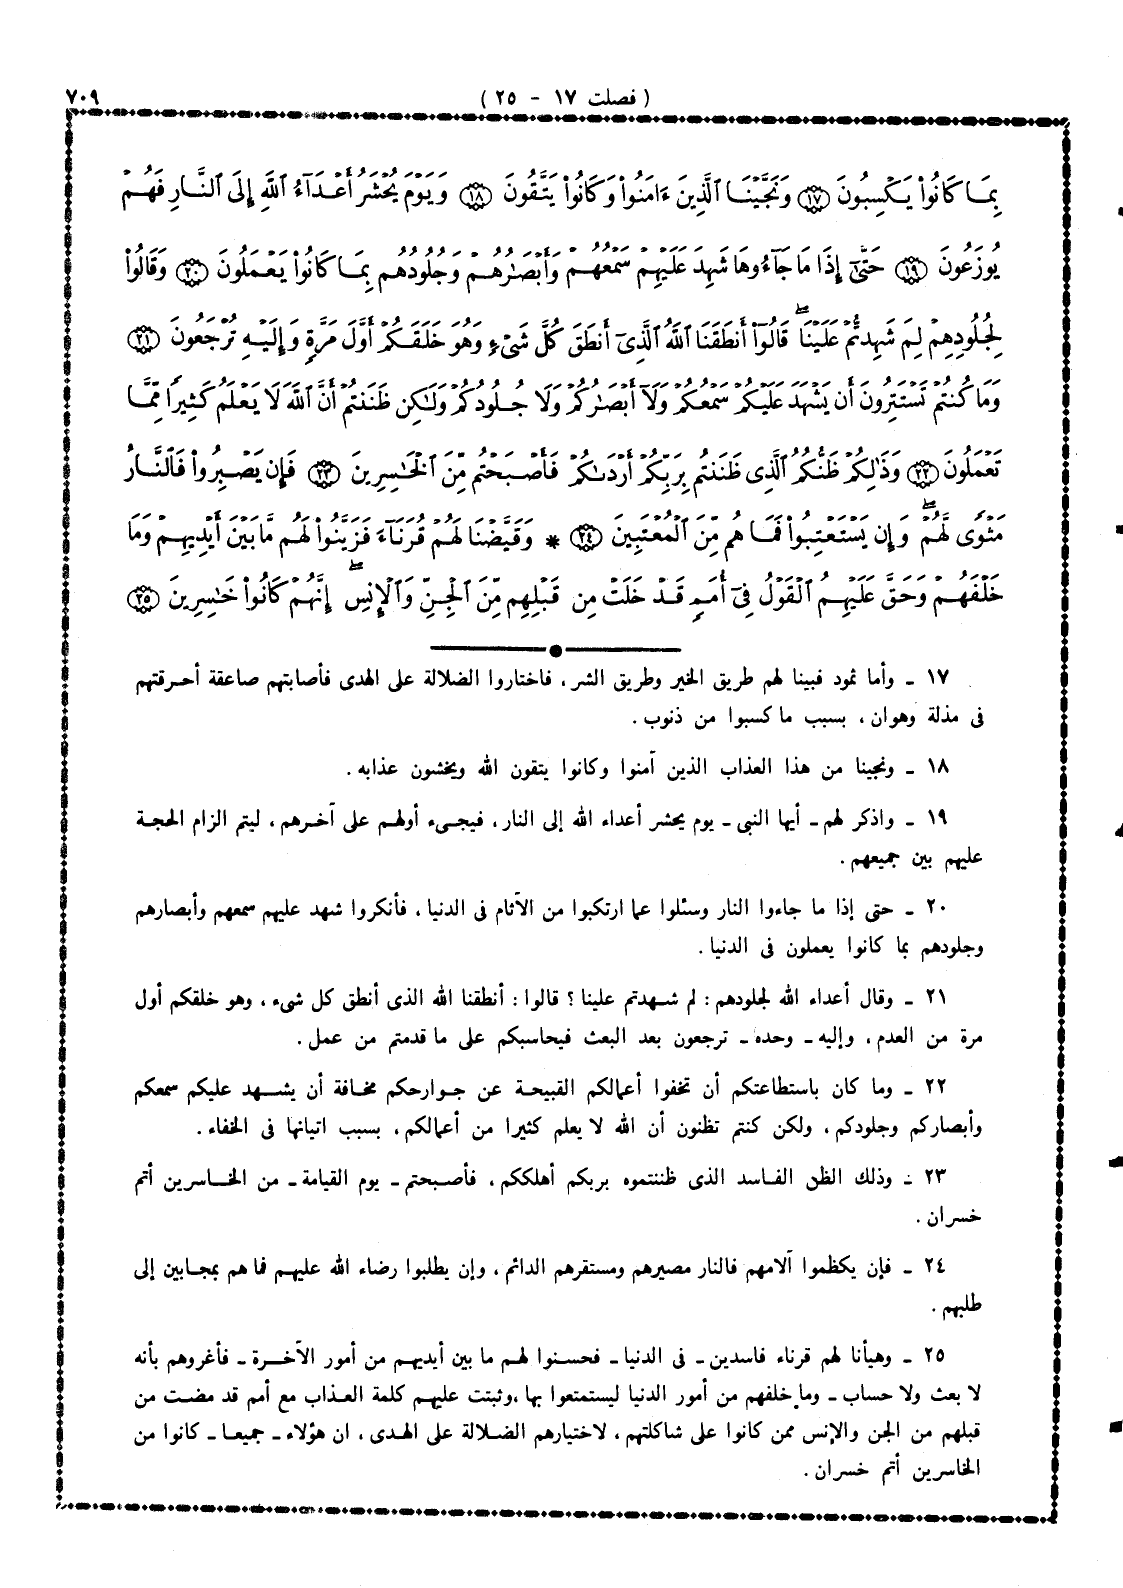 ٧٠٩
( فصلت ١٧ - ٢٥ )
بِمَا كَانُوا۟ يَكْسِبُونَ ﴿١٧﴾ وَنَجَّيْنَا ٱلَّذِينَ ءَامَنُوا۟ وَكَانُوا۟ يَتَّقُونَ ﴿١٨﴾ وَيَوْمَ يُحْشَرُ أَعْدَآءُ ٱللَّهِ إِلَى ٱلنَّارِ فَهُمْ
يُوزَعُونَ ﴿١٩﴾ حَتَّىٰٓ إِذَا مَا جَآءُوهَا شَهِدَ عَلَيْهِمْ سَمْعُهُمْ وَأَبْصَٰرُهُمْ وَجُلُودُهُم بِمَا كَانُوا۟ يَعْمَلُونَ ﴿٢٠﴾ وَقَالُوا۟
لِجُلُودِهِمْ لِمَ شَهِدتُّمْ عَلَيْنَا ۖ قَالُوٓا۟ أَنطَقَنَا ٱللَّهُ ٱلَّذِىٓ أَنطَقَ كُلَّ شَىْءٍ وَهُوَ خَلَقَكُمْ أَوَّلَ مَرَّةٍ وَإِلَيْهِ تُرْجَعُونَ ﴿٢١﴾
وَمَا كُنتُمْ تَسْتَتِرُونَ أَن يَشْهَدَ عَلَيْكُمْ سَمْعُكُمْ وَلَآ أَبْصَٰرُكُمْ وَلَا جُلُودُكُمْ وَلَٰكِن ظَنَنتُمْ أَنَّ ٱللَّهَ لَا يَعْلَمُ كَثِيرًا مِّمَّا
تَعْمَلُونَ ﴿٢٢﴾ وَذَٰلِكُمْ ظَنُّكُمُ ٱلَّذِى ظَنَنتُم بِرَبِّكُمْ أَرْدَىٰكُمْ فَأَصْبَحْتُم مِّنَ ٱلْخَٰسِرِينَ ﴿٢٣﴾ فَإِن يَصْبِرُوا۟ فَٱلنَّارُ
مَثْوًى لَّهُمْ ۖ وَإِن يَسْتَعْتِبُوا۟ فَمَا هُم مِّنَ ٱلْمُعْتَبِينَ ﴿٢٤﴾ * وَقَيَّضْنَا لَهُمْ قُرَنَآءَ فَزَيَّنُوا۟ لَهُم مَّا بَيْنَ أَيْدِيهِمْ وَمَا
خَلْفَهُمْ وَحَقَّ عَلَيْهِمُ ٱلْقَوْلُ فِىٓ أُمَمٍ قَدْ خَلَتْ مِن قَبْلِهِم مِّنَ ٱلْجِنِّ وَٱلْإِنسِ ۖ إِنَّهُمْ كَانُوا۟ خَٰسِرِينَ ﴿٢٥﴾
١٧ ـ وأما ثمود فبينا لهم طريق الخير وطريق الشر ، فاختاروا الضلالة على الهدى فأصابتهم صاعقة أحرقتهم
فى مذلة وهوان ، بسبب ما كسبوا من ذنوب .
١٨ ـ ونجينا من هذا العذاب الذين آمنوا وكانوا يتقون الله ويخشون عذابه .
١٩ ـ واذكر لهم ـ أيها النبى ـ يوم يحشر أعداء الله إلى النار ، فيجىء أولهم على آخرهم ، ليتم الزام الحجة
عليهم بين جميعهم .
٢٠ ـ حتى إذا ما جاءوا النار وسئلوا عما ارتكبوا من الآثام فى الدنيا ، فأنكروا شهد عليهم سمعهم وأبصارهم
وجلودهم بما كانوا يعملون فى الدنيا .
٢١ ـ وقال أعداء الله لجلودهم : لم شهدتم علينا ؟ قالوا : أنطقنا الله الذى أنطق كل شىء ، وهو خلقكم أول
مرة من العدم ، وإليه ـ وحده ـ ترجعون بعد البعث فيحاسبكم على ما قدمتم من عمل .
٢٢ ـ وما كان باستطاعتكم أن تخفوا أعمالكم القبيحة عن جوارحكم مخافة أن يشهد عليكم سمعكم
وأبصاركم وجلودكم ، ولكن كنتم تظنون أن الله لا يعلم كثيرا من أعمالكم ، بسبب اتيانها فى الخفاء .
٢٣ ـ وذلك الظن الفاسد الذى ظننتموه بربكم أهلككم ، فأصبحتم ـ يوم القيامة ـ من الخاسرين أتم
خسران .
٢٤ ـ فإن يكظموا آلامهم فالنار مصيرهم ومستقرهم الدائم ، وإن يطلبوا رضاء الله عليهم فما هم بمجابين إلى
طلبهم .
٢٥ ـ وهيأنا لهم قرناء فاسدين ـ فى الدنيا ـ فحسنوا لهم ما بين أيديهم من أمور الآخرة ـ فأغروهم بأنه
لا بعث ولا حساب ـ وما خلفهم من أمور الدنيا ليستمتعوا بها ،وثبتت عليهم كلمة العذاب مع أمم قد مضت من
قبلهم من الجن والإنس ممن كانوا على شاكلتهم ، لاختيارهم الضلالة على الهدى ، ان هؤلاء ـ جميعا ـ كانوا من
الخاسرين أتم خسران .